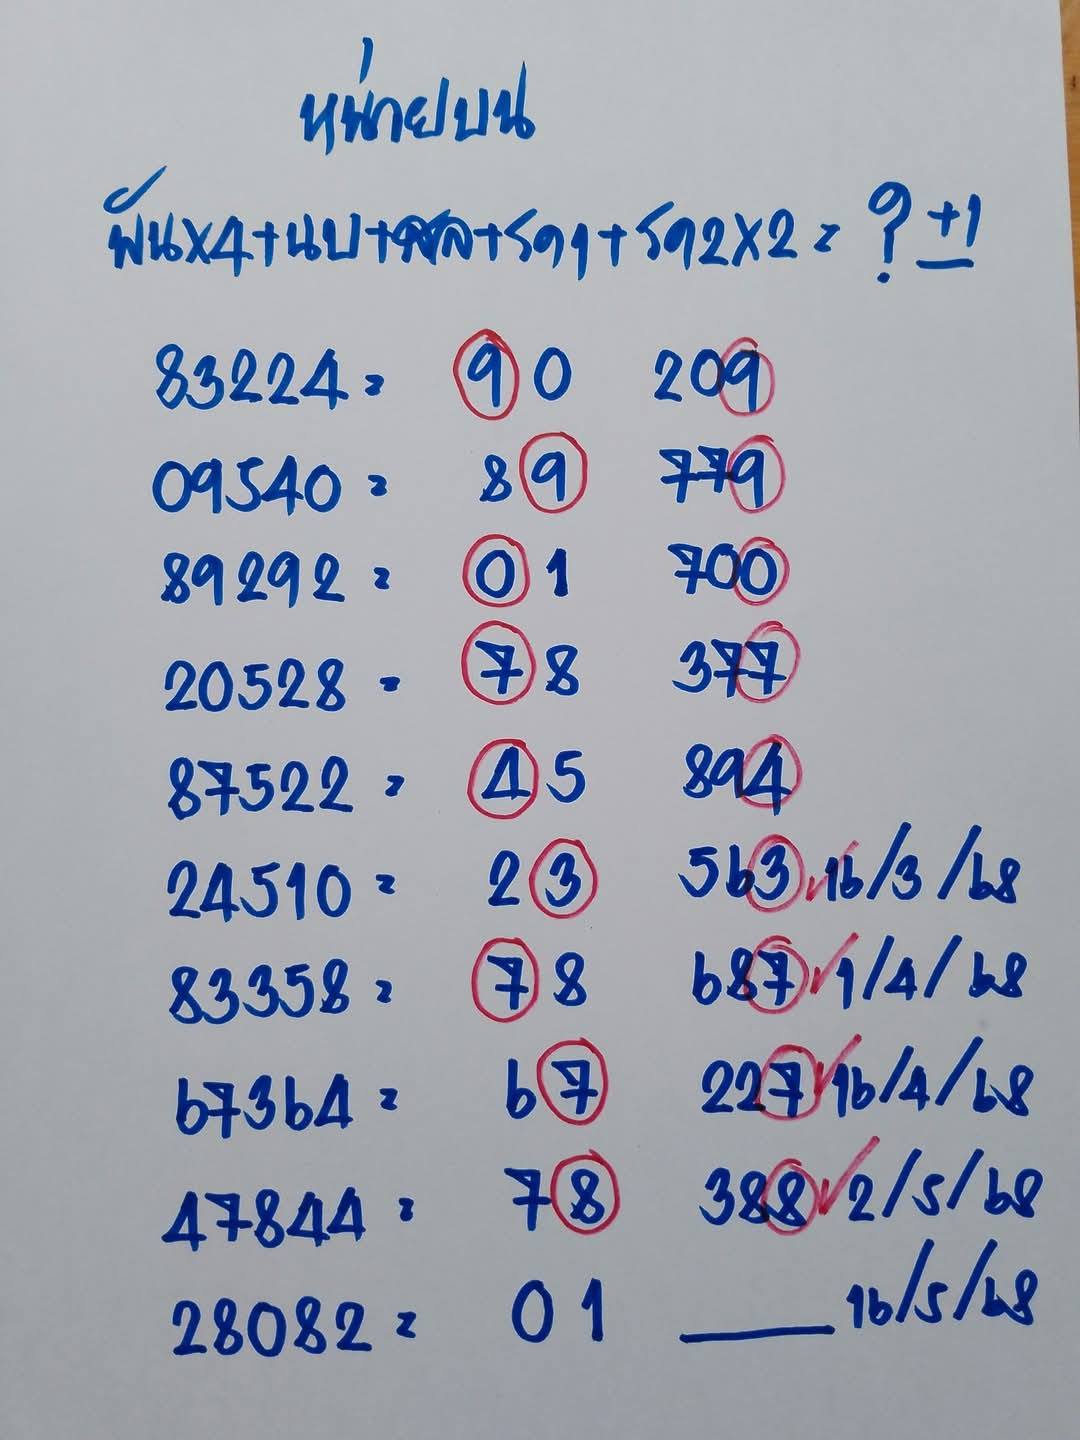 หน่วยบน
พันx4+นบ+สล+รต1+รต2x2 = ? +1
83224 = 90 209
09540 = 89 779
89292 = 01 700
20528 = 78 377
87522 = 45 894
24510 = 23 563 16/3/68
83358 = 78 687 1/4/68
67364 = 67 227 16/4/68
47844 = 78 388 2/5/68
28082 = 01 ___ 16/5/68